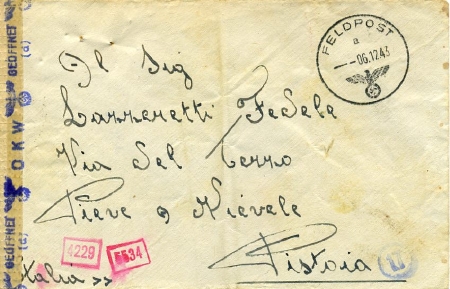 FELDPOST
a
--06.12.43
Al Sig
Lazzeretti Fedele
Via Del Terzo
Pieve a Nievole
Pistoia
Italia >>
4229
5534
GEÖFFNET
(a)
OKW
GEÖFFNET
(a)